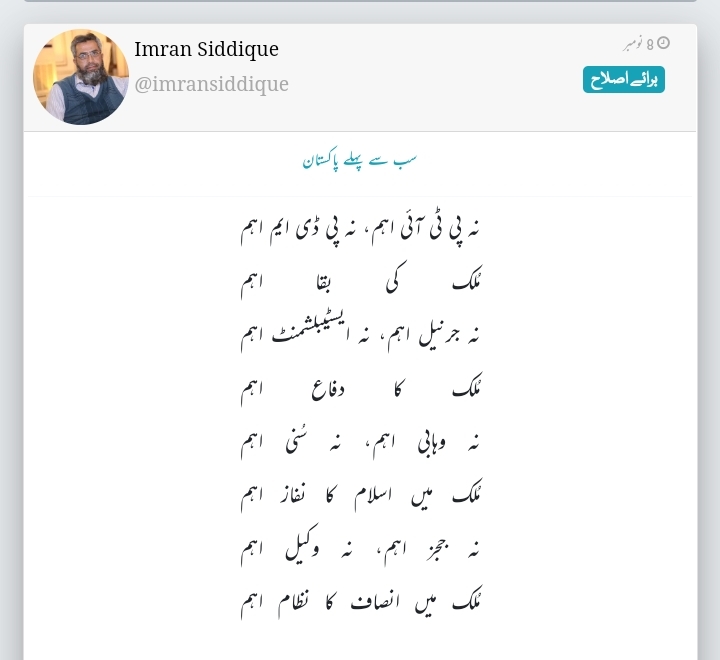 Imran Siddique
@imransiddique
8 نومبر
برائے اصلاح
سب سے پہلے پاکستان
نہ پی ٹی آئی اہم، نہ پی ڈی ایم اہم
مُلک کی بقا اہم
نہ جرنیل اہم، نہ ایسٹیبلشمنٹ اہم
مُلک کا دفاع اہم
نہ وہابی اہم، نہ سُنی اہم
مُلک میں اسلام کا نفاز اہم
نہ ججز اہم، نہ وکیل اہم
مُلک میں انصاف کا نظام اہم